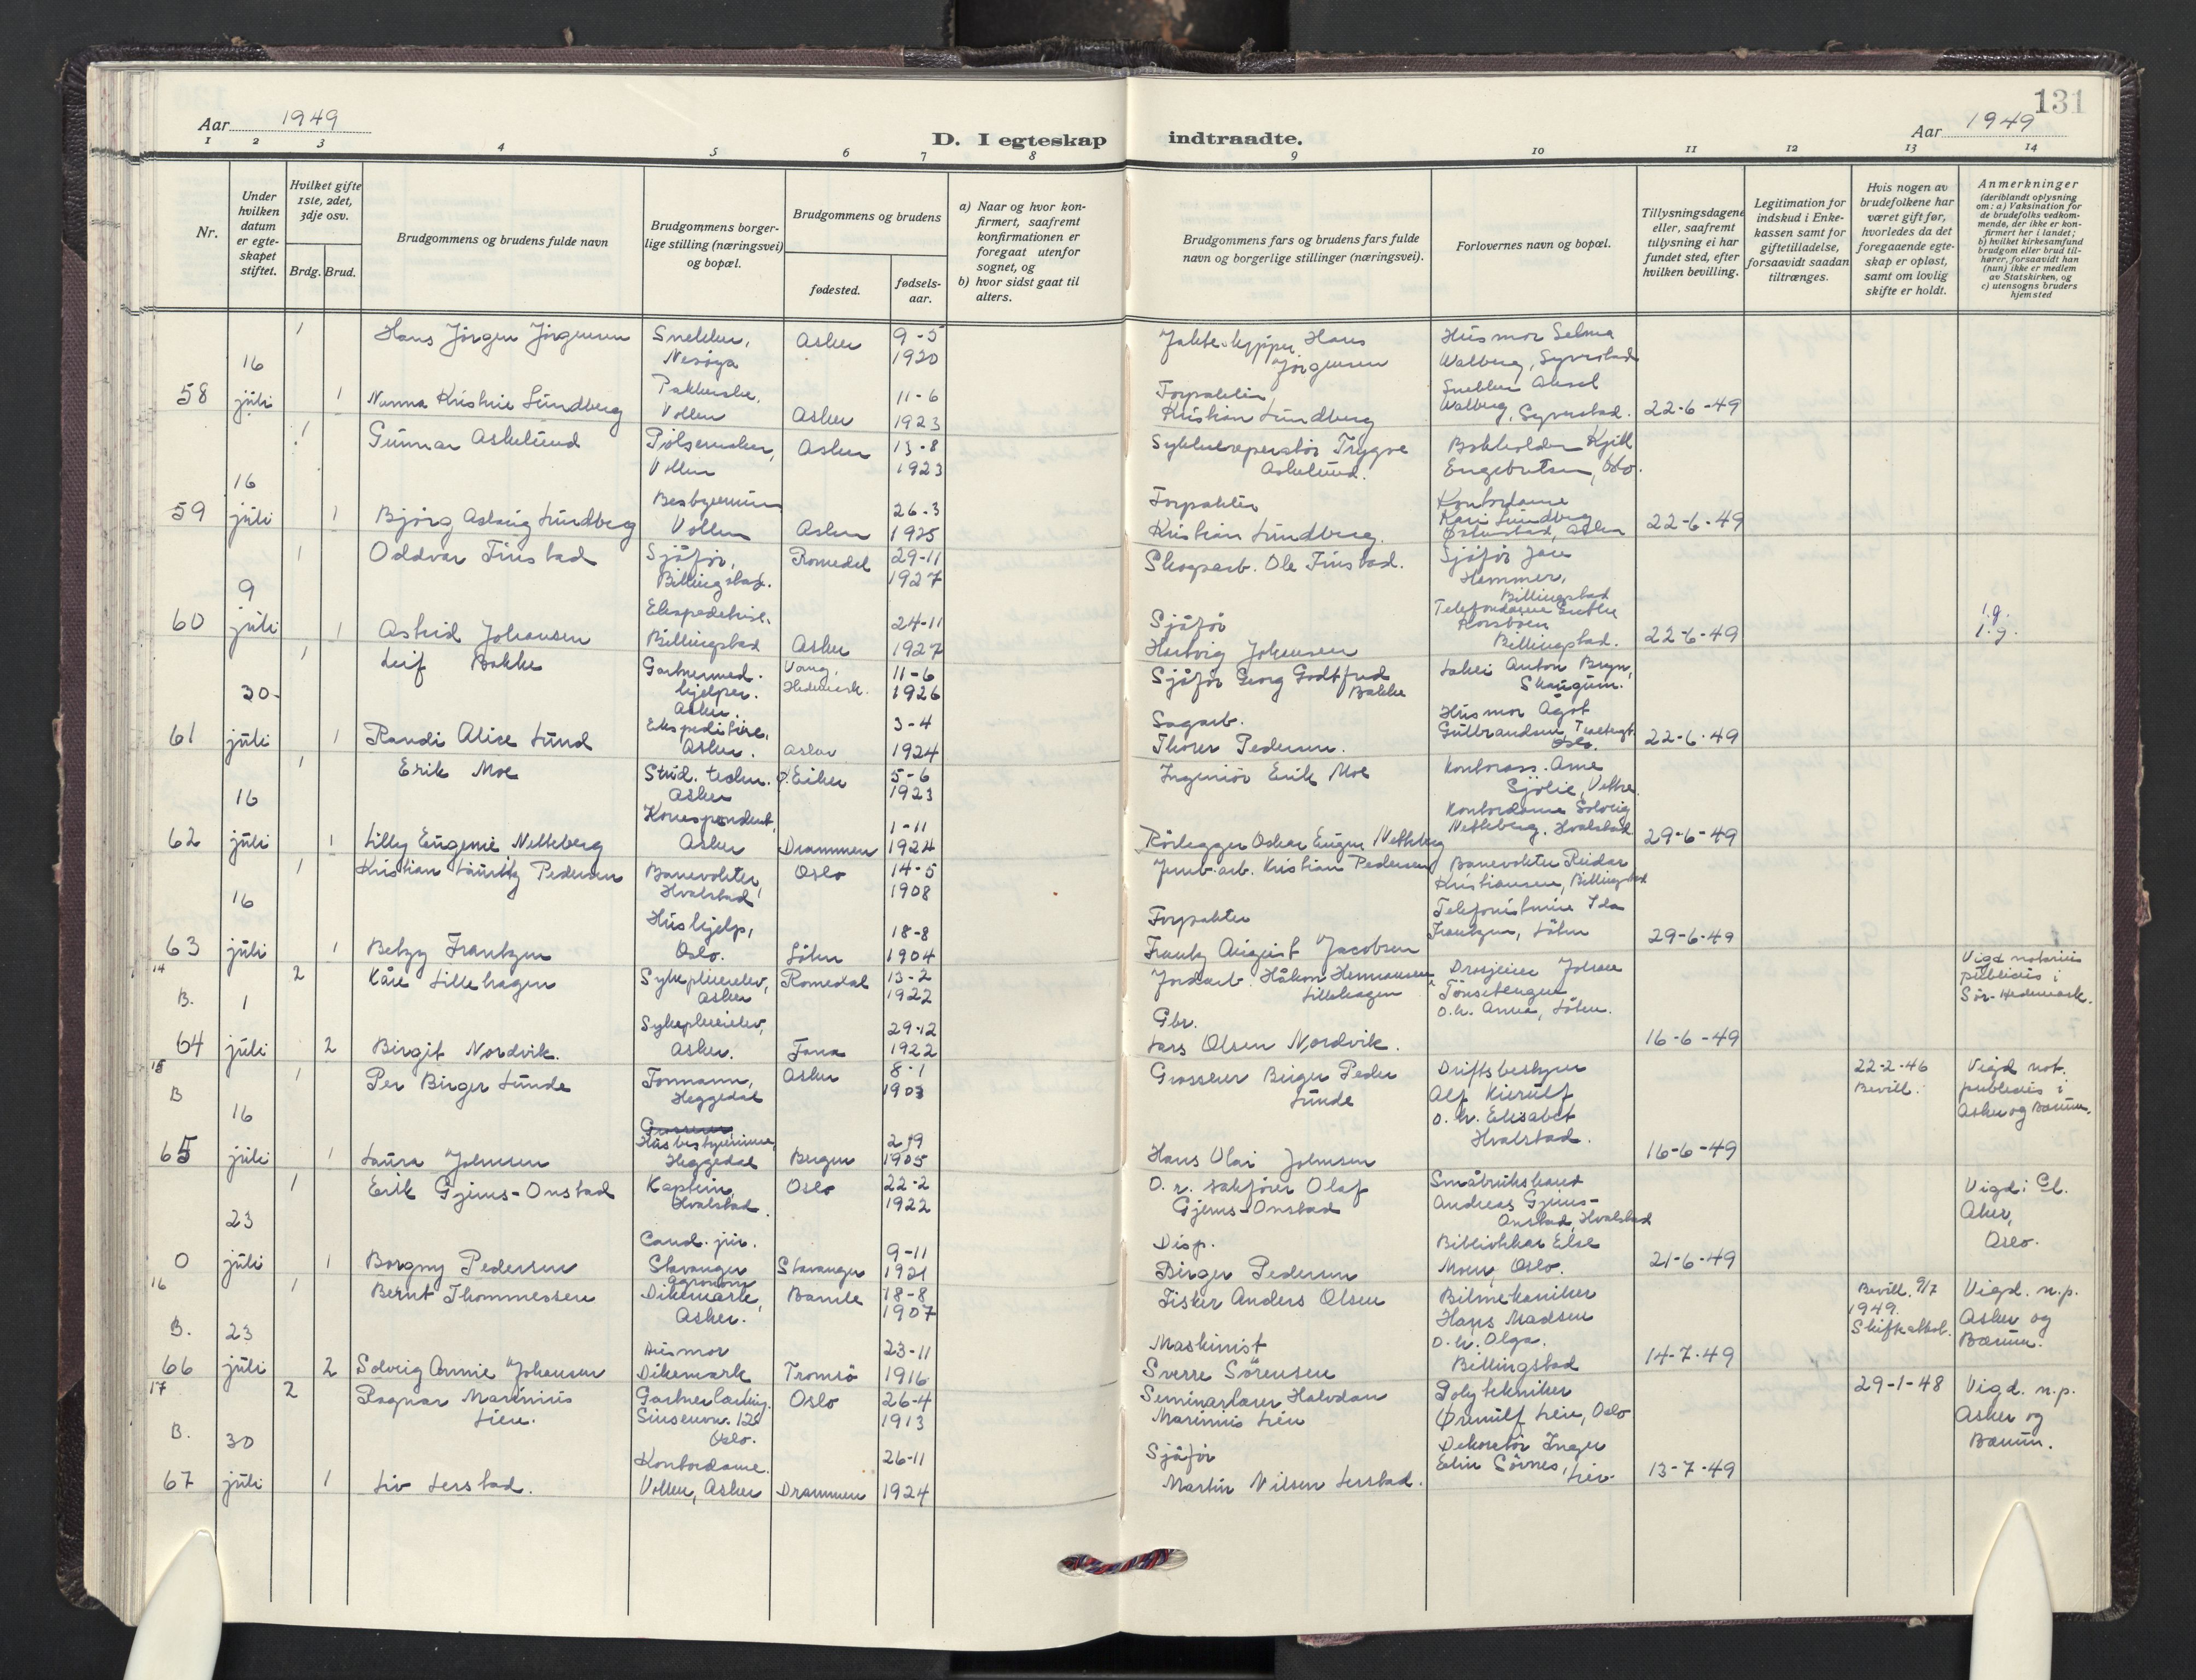 131
Aar 1949
D. I egteskap indtraadte.
Aar 1949
1 2 3 4 5 6 7 8 9 10 11 12 13 14
Nr.
Under hvilken datum er egteskapet stiftet.
Hvilket gifte 1ste, 2det, 3dje osv.
Brdg. Brud.
Brudgommens og brudens fulde navn
Brudgommens borgerlige stilling (næringsvei) og bopæl.
Brudgommens og brudens
fødested.
fødselsaar.
a) Naar og hvor konfirmert, saafremt konfirmationen er foregaat utenfor sognet, og
b) hvor sidst gaat til alters.
Brudgommens fars og brudens fars fulde navn og borgerlige stillinger (næringsvei).
Forlovernes navn og bopæl.
Tillysningsdagene eller, saafremt tillysning ei har fundet sted, efter hvilken bevilling.
Legitimation for indskud i Enkekassen samt for giftetilladelse, forsaavidt saadan tiltrænges.
Hvis nogen av brudefolkene har været gift før, hvorledes da det foregaaende egteskap er opløst, samt om lovlig skifte er holdt.
Anmerkninger (deriblandt oplysning om: a) Vaksination for de brudefolks vedkommende, der ikke er konfirmert her i landet; b) hvilket kirkesamfund brudgom eller brud tilhører, forsaavidt han (hun) ikke er medlem av Statskirken, og c) utensogns bruders hjemsted
1 Hans Jörgen Jörgensen Snekker, Nesøya Asker 9-5 1920 Jakteskipper Hans Jörgensen Husmor Selma Walberg, Syverstad
58 16 juli 1 Nanna Kristine Lundberg Vollen Asker 11-6 1923 Forpakter Kristian Lundberg Snekker Aksel Walberg, Syverstad. 22-6-49
1 Gunnar Askelund Pölsemaker, Vollen Asker 13-8 1923 Sykkelreparatör Trygve Askelund. Bokholder Kjell Engebretsen, Oslo.
59 16 juli 1 Björg Aslaug Lundberg Bestyrerinne Vollen Asker 26-3 1925 Forpakter Kristian Lundberg. Kontordame Kari Lundberg Asker 22-6-49
1 Oddvar Finstad Sjåför, Billingstad. Romedal 29-11 1927 Skogsarb. Ole Finstad. Sjåför Hammer, Billingstad
60 9 juli 1 Astrid Johansen Ekspeditrise, Billingstad Asker 24-11 1927 Sjåför Hartvig Johansen Telefondame Billingstad. 22-6-49
1 Leif Bakke Gartnermedhjelper. Asker. Vang, Hedmark. 11-6 1926 Sjåför Georg Godtfred Bakke Lakei Anton Bryn, Skaugum.
61 30. juli 1 Randi Alice Lund Ekspeditrise, Asker. Asker 3-4 1924 Sagarb. Thorer Pedersen. Husmor Ågot Gulbrandsen, Oslo. 22-6-49
1 Erik Moe Stud. techn. Asker Ø. Eiker 5-6 1923 Ingeniör Erik Moe Kontorass. Arne Sjölie, Vettre.
62 16 juli 1 Lilly Eugenie Netteberg Korrespondent, Asker Drammen 1-11 1924 Rörlegger Oskar Eugen Netteberg Kontordame Solveig Netteberg. Hvalstad 29-6-49
1 Kristian Lauritz Pedersen Banevokter, Hvalstad Oslo 14-5 1908 Jernb.arb. Kristian Pedersen Banevokter Reidar Kristiansen, Billingstad
63 16 juli 1 Betzy Frantzen Hushjelp, Oslo. Löten 18-8 1904 Forpakter Frantz August Jacobsen Telefonistinne Ida Frantzen, Löten 29-6-49
14 2 Kåre Lillehagen Sykepleierelev, Asker Romedal 13-2 1922 Jordarb. Håkon Hermansen Lillehagen Drosjeeier Johan Tönsetengen o.h. Anna, Löten. Vigd notarius publicus i Sör-Hedemark.
B. 64 1 juli 2 Birgit Nordvik. Sykepleierelev, Asker. Fana 29-12 1922 Gbr. Lars Olsen Nordvik. 16-6-49
15 1 Per Birger Lunde Formann, Heggedal Asker 8-1 1903 Grosserer Birger Peder Lunde Driftsbestyrer Alf Kierulf o.h. Elisabet Hvalstad. 22-2-46 Bevill. Vigd not. publicus i Asker og Bærum.
B 65 16 juli 1 Laura Johnsen Husbestyrerinne, Heggedal Bergen 2-9 1905 Hans Olai Johnsen 16-6-49
1 Erik Gjems-Onstad Kaptein, Hvalstad. Oslo 22-2 1922 O.r. sakförer Olaf Gjems-Onstad Småbruksbrukar Andreas Gjems-Onstad, Hvalstad Vigd i Gl. Aker, Oslo.
0 23 juli 1 Borgny Pedersen Cand. jur. Stavanger Stavanger 9-11 1921 Disp. Birger Pedersen Bibliotekar Else Moen, Oslo. 21-6-49
16 1 Bernt Thommessen Agronom Dikemark, Asker. Bamle 18-8 1907 Fisker Anders Olsen Bilmekaniker Hans Madsen o.h. Olga. Billingstad Bevill. 9/7 1949. Skifteattest. Vigd. n.p. Asker og Bærum.
B. 66 23 juli 2 Solveig Annie Johansen Husmor Dikemark Tromsö 23-11 1916 Maskinist Sverre Sörensen 14-7-49
17 2 Ragnar Marinius Lien. Sinsenvn. 12 Oslo. Oslo 26-4 1913 Seminarlærer Halvdan Marinius Lien Polytekniker Ørnulf Lien, Oslo 29-1-48 Vigd. n.p. Asker og Bærum.
B. 67 30 juli 1 Liv Lerstad. Kontordame. Vollen, Asker Drammen 26-11 1924 Sjåför Martin Nilsen Lerstad. Dekoratör Inger Elin Sörnes, Lier. 13-7-49